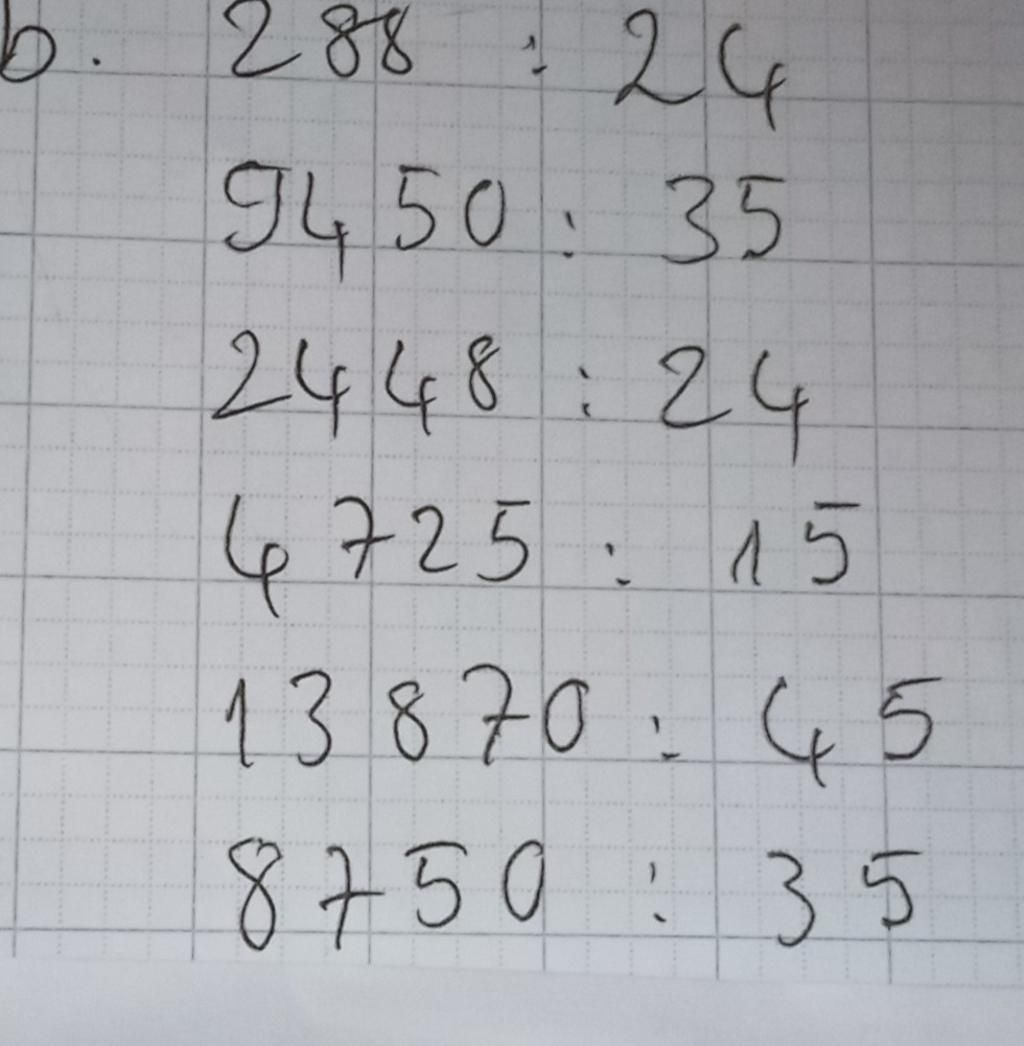 b. 288 : 24
9450 : 35
2448 : 24
4725 : 15
13870 : 45
8750 : 35